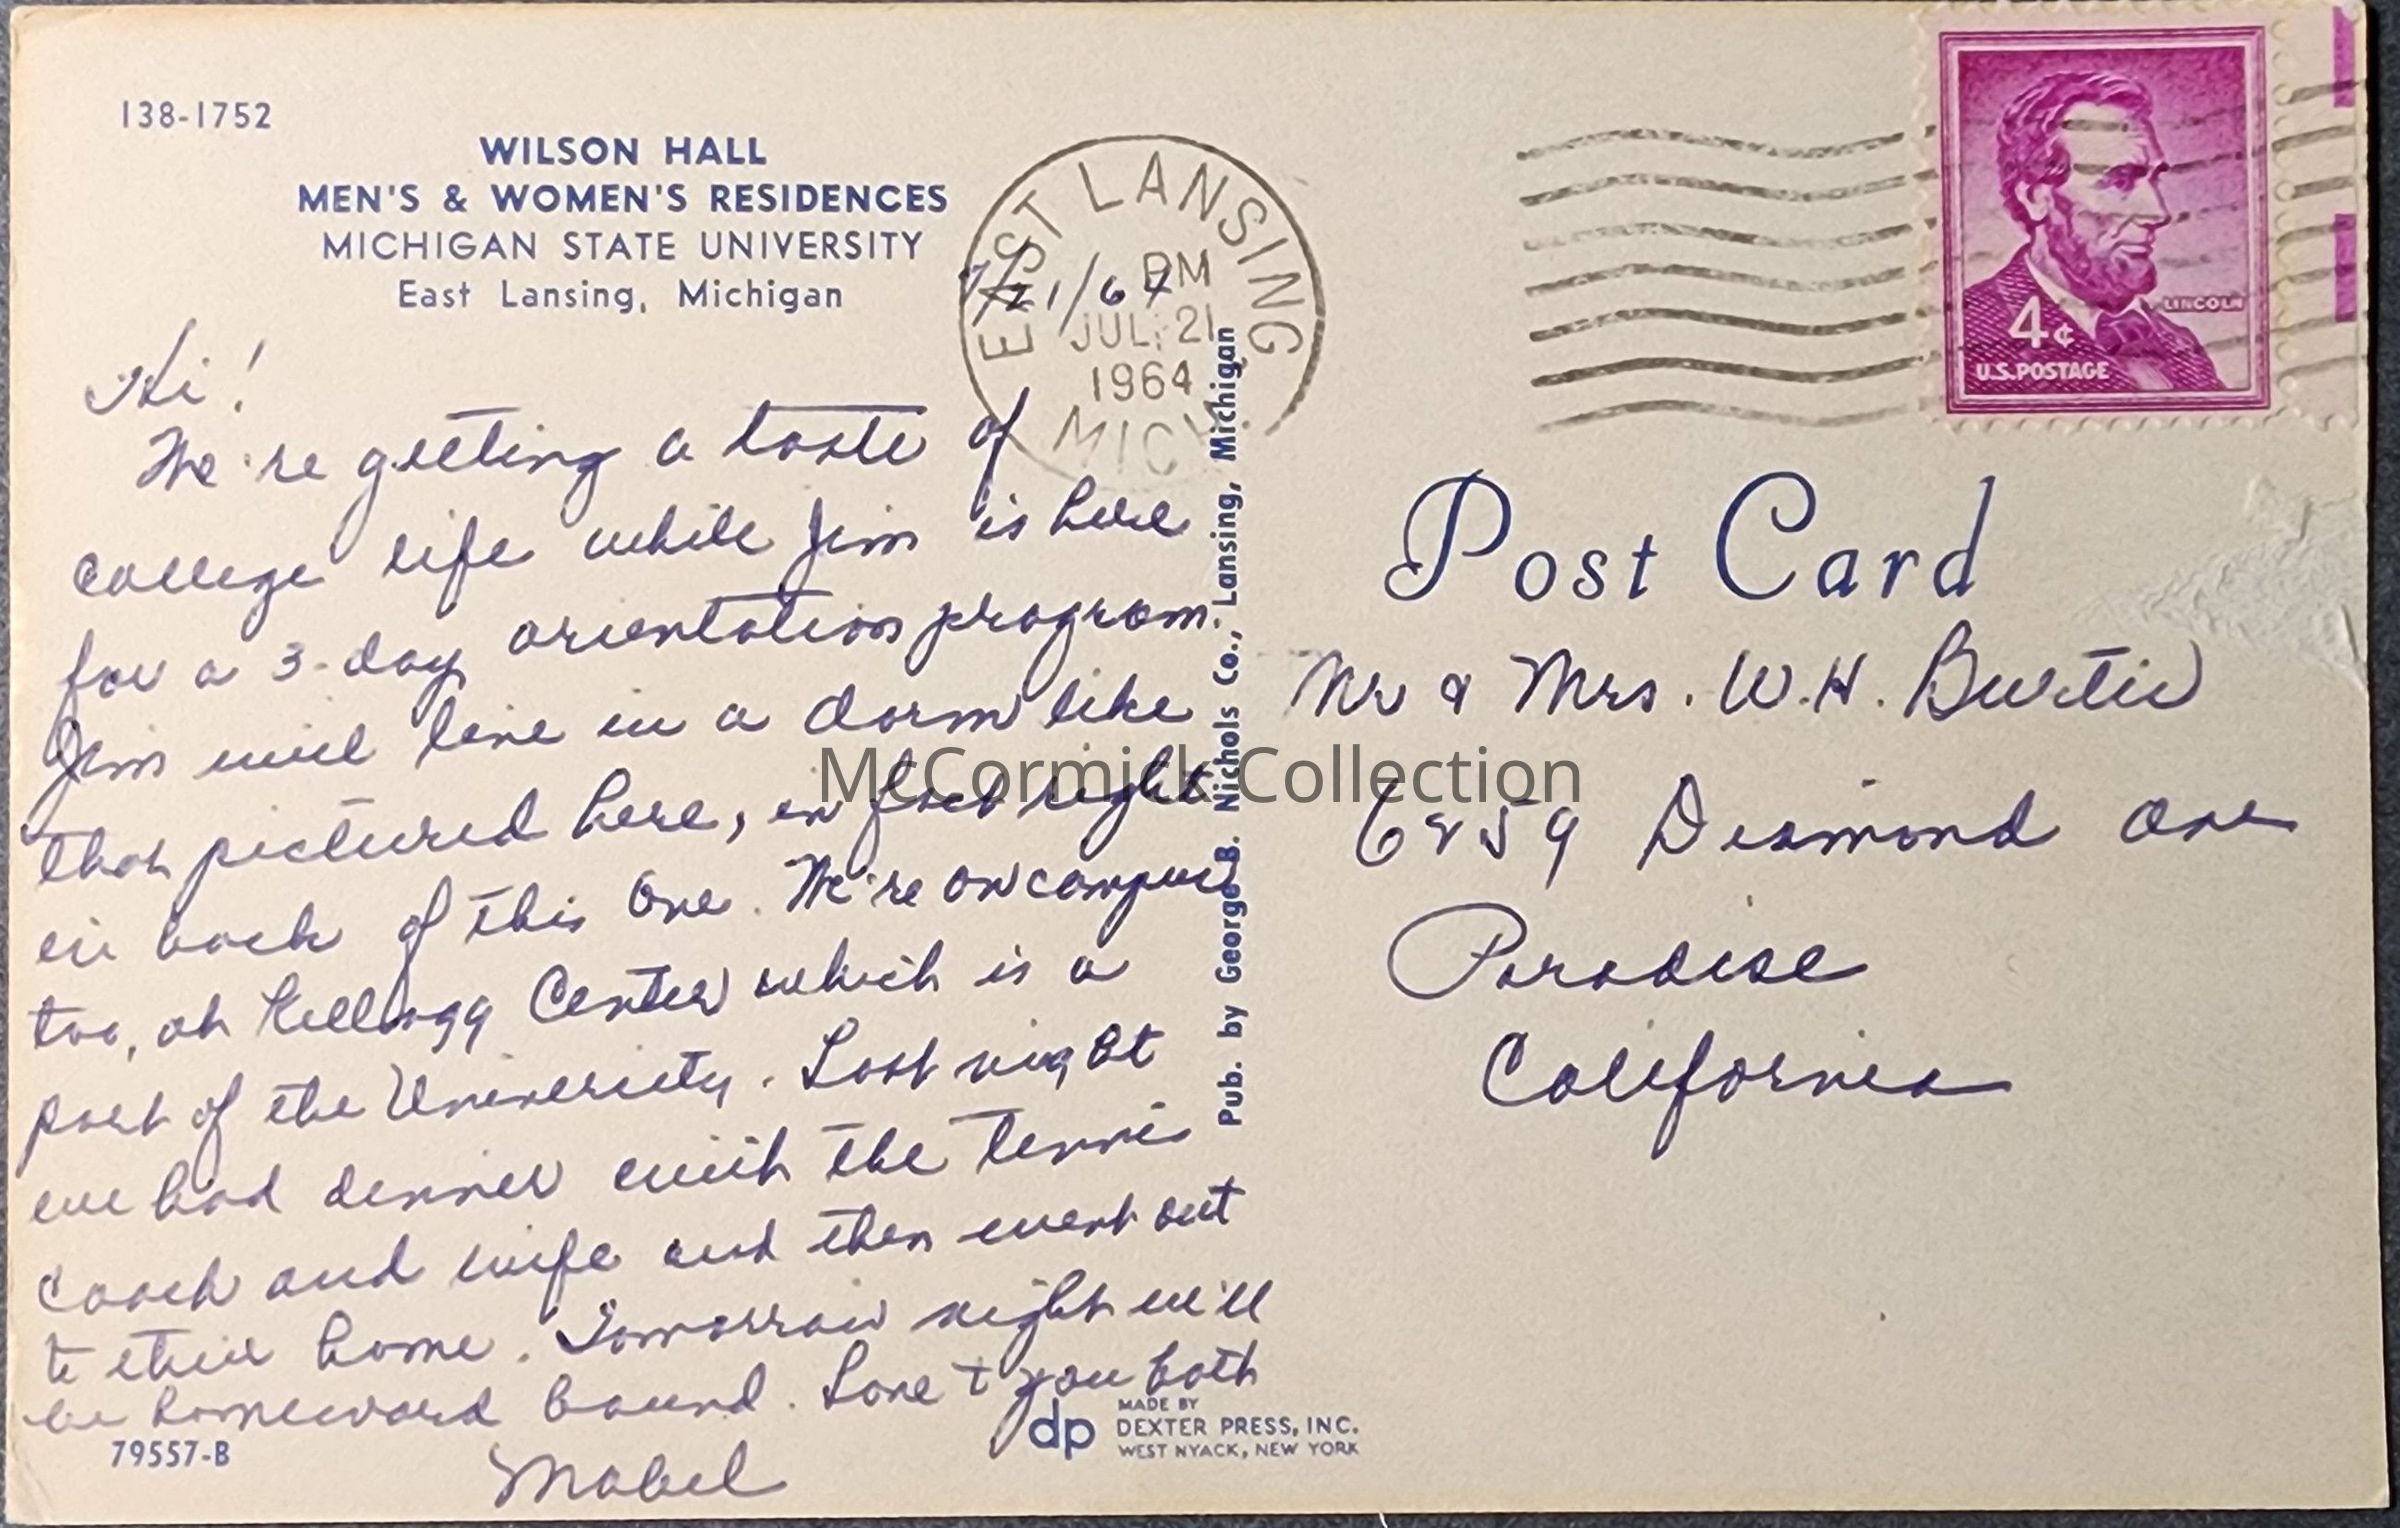 138-1752
WILSON HALL
MEN'S & WOMEN'S RESIDENCES
MICHIGAN STATE UNIVERSITY
East Lansing, Michigan
7/21/64
Hi!
We're getting a taste of
college life while Jim is here
for a 3-day orientation program.
Jim will live in a dorm like
that pictured here, in fact right
in back of this one. We're on campus
too, at Kellogg Center which is a
part of the University. Last night
we had dinner with the tennis
coach and wife and then went out
to their home. Tomorrow night we'll
be homeward bound. Love to you both
Mabel
79557-B
EAST LANSING
PM
JUL 21
1964
MICH
Pub. by George B. Nichols Co., Lansing, Michigan
dp
MADE BY
DEXTER PRESS, INC.
WEST NYACK, NEW YORK
LINCOLN
4¢
U.S. POSTAGE
Post Card
Mr & Mrs. W.H.
6859 Desmond Ave
Paradise
California
McCormick Collection